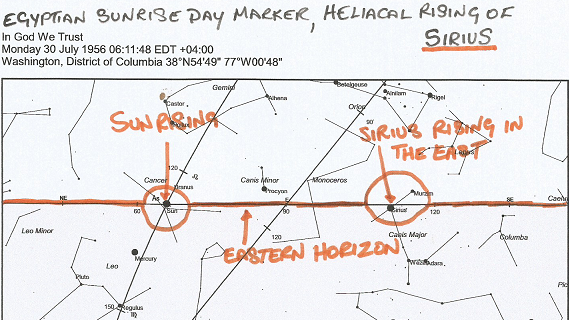 EGYPTIAN SUNRISE DAY MARKER, HELIACAL RISING OF
SIRIUS
In God We Trust
Monday 30 July 1956 06:11:48 EDT +04:00
Washington, District of Columbia 38°N54'49" 77°W00'48"
Gemini
Betelgeuse
Alnilam
Rigel
Castor
Alhena
Orion
Pollux
90
SUNRISING
SIRIUS RISING IN
THE EAST
Lepus
120
Cancer
Uranus
Canis Minor
Procyon
Monoceros
Murzim
NE
As
60
Sun
E
90
Sirius
120
SE
Leo Minor
120
EASTERN HORIZON
Canis Major
Columba
Mercury
Leo
Wezen
Adara
Pluto
150
Regulus